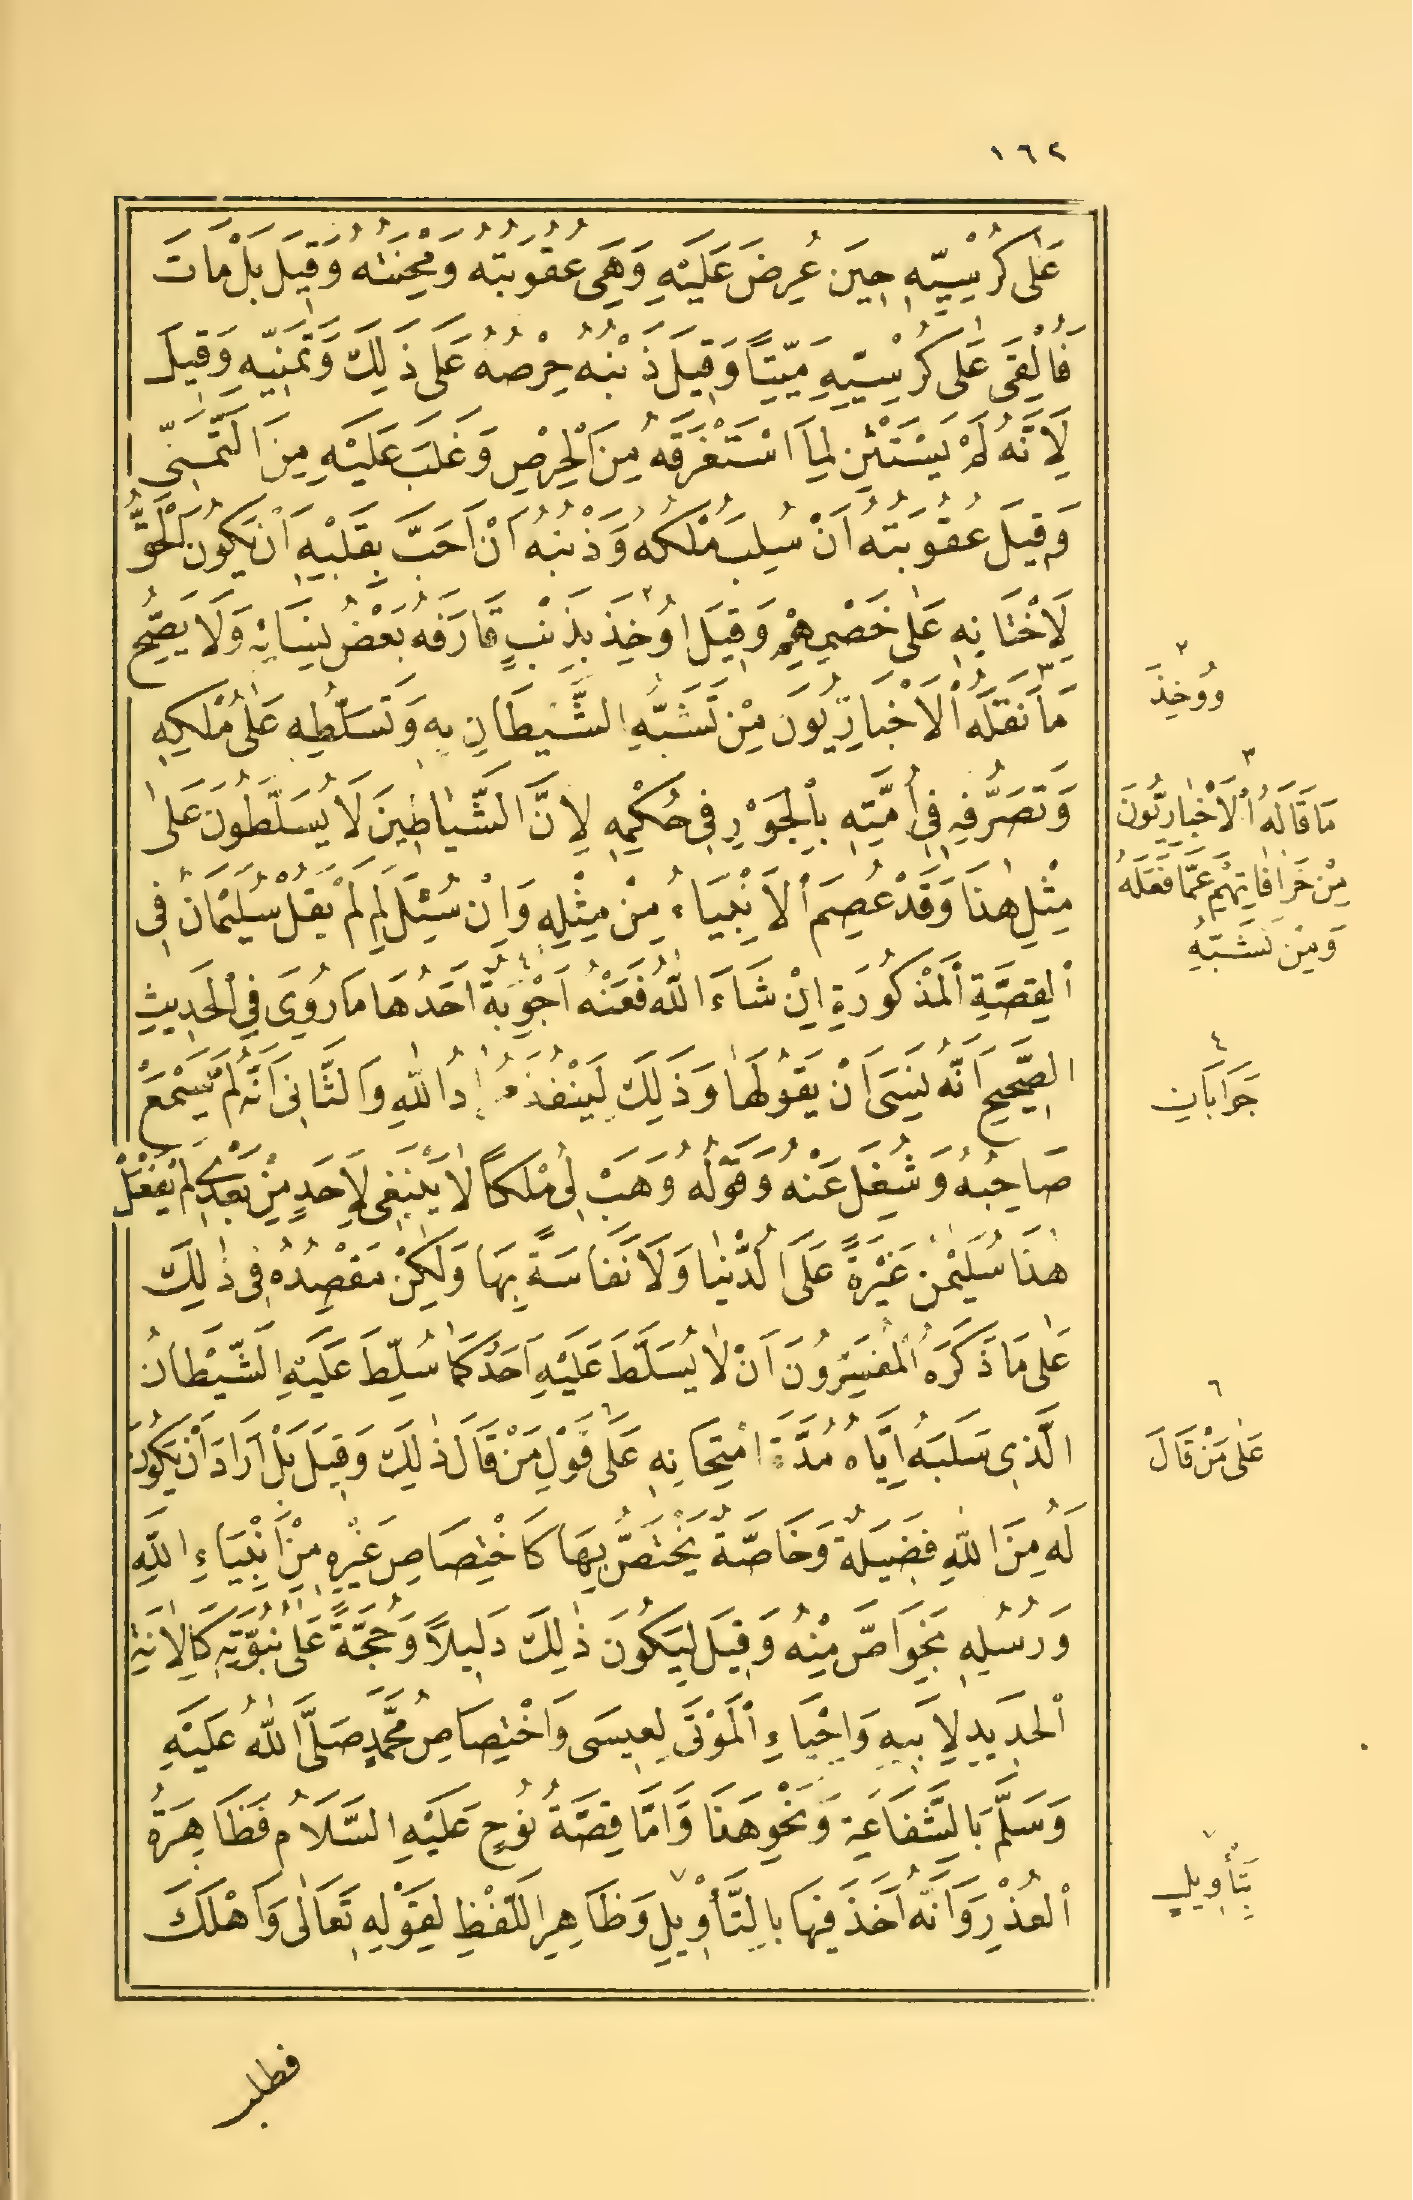 ١٦٢
عَلٰى كُرْسِيِّهِ حِينَ عُرِضَ عَلَيْهِ وَهِىَ عُقُوبَتُهُ وَمِحْنَتُهُ وَقِيلَ بَلْ مَاتَ
فَأُلْقِىَ عَلٰى كُرْسِيِّهِ مَيِّتًا وَقِيلَ ذَنْبُهُ حِرْصُهُ عَلٰى ذٰلِكَ وَتَمَنِّيهِ وَقِيلَ
لِاَنَّهُ لَمْ يَسْتَثْنِ لِمَا اسْتَغْرَقَهُ مِنَ الْحِرْصِ وَغَلَبَ عَلَيْهِ مِنَ التَّمَنِّى
وَقِيلَ عُقُوبَتُهُ اَنْ سُلِبَ مُلْكُهُ وَذَنْبُهُ اَنْ اَحَبَّ بِقَلْبِهِ اَنْ يَكُونَ الْحَقُّ
لِاَخْتَانِهِ عَلٰى خَصْمِهِمْ وَقِيلَ اُوخِذَ بِذَنْبٍ قَارَفَهُ بَعْضُ نِسَائِهِ وَلَا يَصِحُّ
مَا نَقَلَهُ الْاَخْبَارِيُّونَ مِنْ تَشَبُّهِ الشَّيْطَانِ بِهِ وَتَسَلُّطِهِ عَلٰى مُلْكِهِ
وَتَصَرُّفِهِ فِى اُمَّتِهِ بِالْجَوْرِ فِى حُكْمِهِ لِاَنَّ الشَّيَاطِينَ لَا يُسَلَّطُونَ عَلٰى
مِثْلِ هٰذَا وَقَدْ عُصِمَ الْاَنْبِيَاءُ مِنْ مِثْلِهِ وَاِنْ سُئِلَ لِمَ لَمْ يَقُلْ سُلَيْمَانُ فِى
الْقِصَّةِ الْمَذْكُورَةِ اِنْ شَاءَ اللّٰهُ فَعَنْهُ اَجْوِبَةٌ اَحَدُهَا مَا رُوِىَ فِى الْحَدِيثِ
الصَّحِيحِ اَنَّهُ نَسِىَ اَنْ يَقُولَهَا وَذٰلِكَ لِيَنْفُذَ مُرَادُ اللّٰهِ وَالثَّانِى اَنَّهُ لَمْ يَسْمَعْ
صَاحِبَهُ وَشُغِلَ عَنْهُ وَقَوْلُهُ وَهَبْ لِى مُلْكًا لَا يَنْبَغِى لِاَحَدٍ مِنْ بَعْدِى لَمْ يَفْعَلْ
هٰذَا سُلَيْمٰنُ غَيْرَةً عَلَى الدُّنْيَا وَلَا نَفَاسَةً بِهَا وَلٰكِنْ مَقْصِدُهُ فِى ذٰلِكَ
عَلٰى مَا ذَكَرَهُ الْمُفَسِّرُونَ اَنْ لَا يُسَلَّطَ عَلَيْهِ اَحَدٌ كَمَا سُلِّطَ عَلَيْهِ الشَّيْطَانُ
الَّذِى سَلَبَهُ اِيَّاهُ مُدَّةَ امْتِحَانِهِ عَلٰى قَوْلِ مَنْ قَالَ ذٰلِكَ وَقِيلَ بَلْ اَرَادَ اَنْ يَكُونَ
لَهُ مِنَ اللّٰهِ فَضِيلَةٌ وَخَاصَّةٌ يَخْتَصُّ بِهَا كَاخْتِصَاصِ غَيْرِهِ مِنْ اَنْبِيَاءِ اللّٰهِ
وَرُسُلِهِ بِخَوَاصَّ مِنْهُ وَقِيلَ لِيَكُونَ ذٰلِكَ دَلِيلًا وَحُجَّةً عَلٰى نُبُوَّتِهِ كَاِلَانَةِ
الْحَدِيدِ لِاَبِيهِ وَاِحْيَاءِ الْمَوْتٰى لِعِيسٰى وَاخْتِصَاصِ مُحَمَّدٍ صَلَّى اللّٰهُ عَلَيْهِ
وَسَلَّمَ بِالشَّفَاعَةِ وَنَحْوِ هٰذَا وَاَمَّا قِصَّةُ نُوحٍ عَلَيْهِ السَّلَامُ فَظَاهِرَةُ
الْعُذْرِ وَاَنَّهُ اَخَذَ فِيهَا بِالتَّأْوِيلِ وَظَاهِرِ اللَّفْظِ لِقَوْلِهِ تَعَالٰى وَاَهْلَكَ
٢
وَوُخِذَ
٣
مَا قَالَهُ الْاَخْبَارِيُّونَ
مِنْ خَرَافَاتِهِمْ عَمَّا فَعَلَهُ
وَمِنْ تَشَبُّهِ
٤
جَوَابَانِ
٦
عَلٰى مَنْ قَالَ
٧
بِتَأْوِيلِ